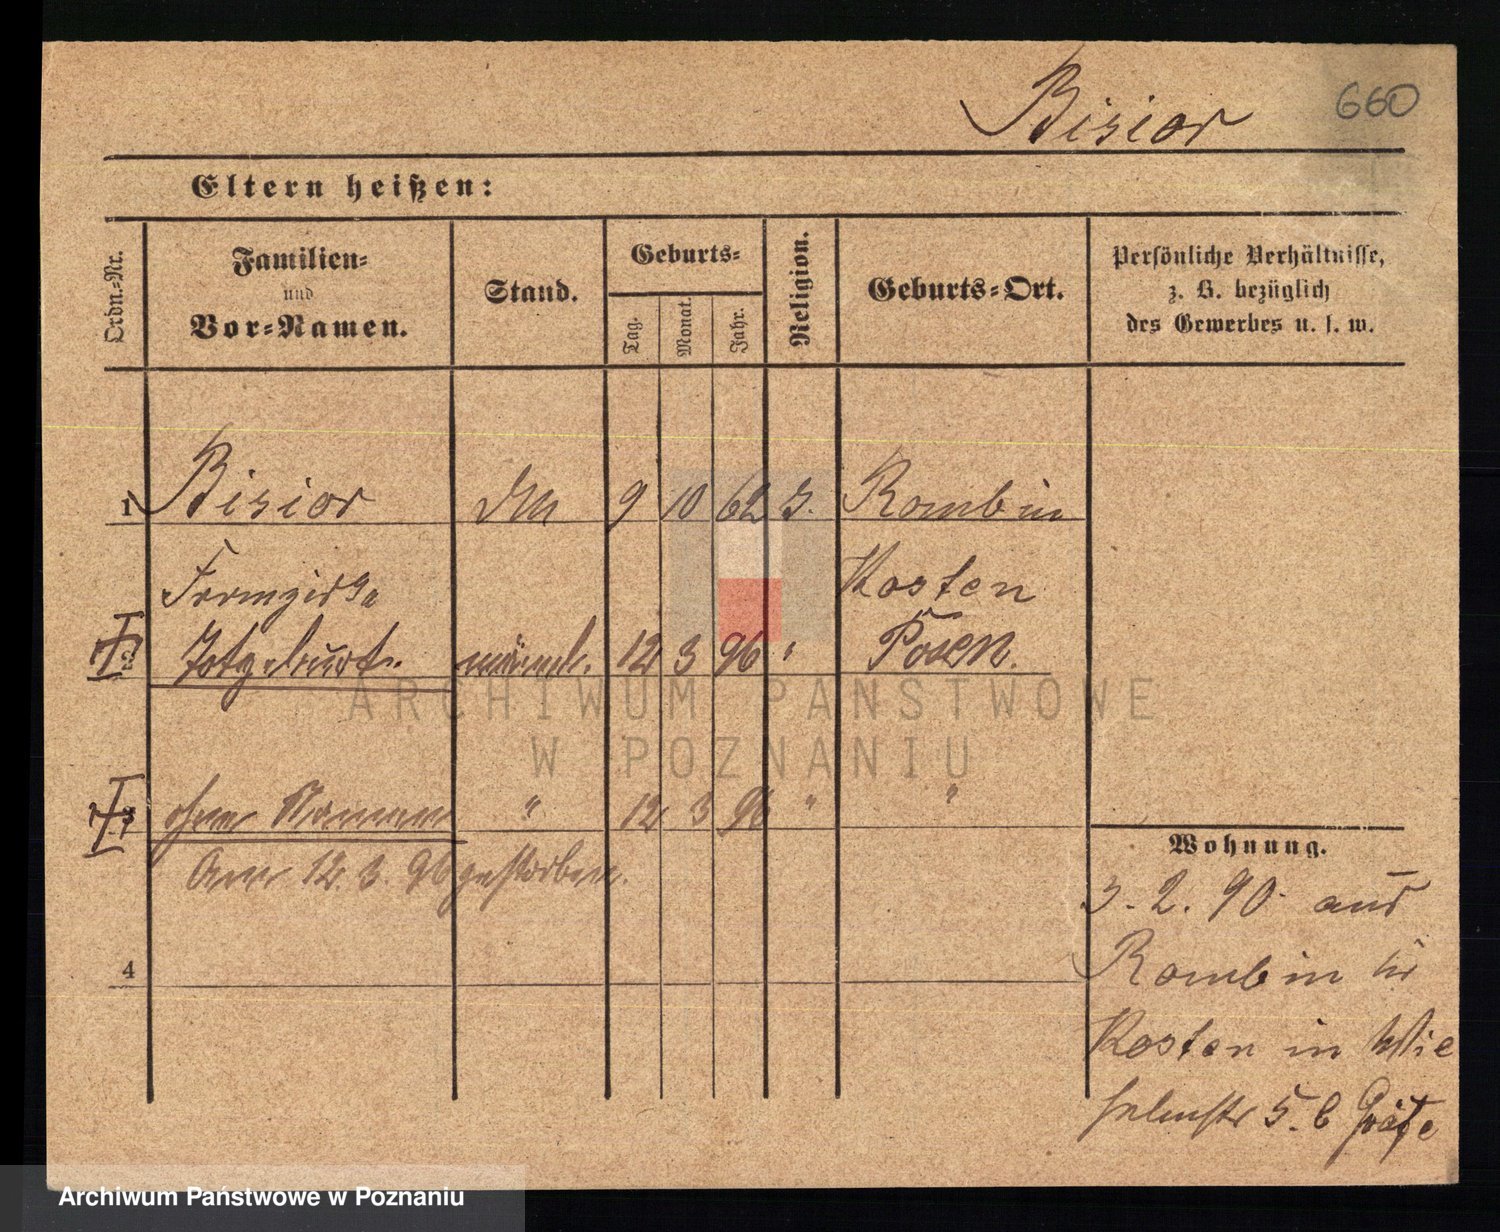 Bisior 660
Eltern heißen:
Ordn.-Nr.
Familien-
und
Vor-Namen.
Stand.
Geburts-
Tag.
Monat.
Jahr.
Religion.
Geburts-Ort.
Persönliche Verhältnisse,
z. B. bezüglich
des Gewerbes u. s. w.
1 Bisior 9 10 62 Rombin
Kosten
2 Totgeburt. männl. 12 3 96 " Posen.
ARCHIWUM PAŃSTWOWE
W POZNANIU
3 ohne Namen " 12 3 96 " "
Am 12. 3. 96 gestorben.
4
Wohnung.
3. 2. 90 aus
Rombin
Kosten in Wil
helmstr 5. b Gräfe
Archiwum Państwowe w Poznaniu